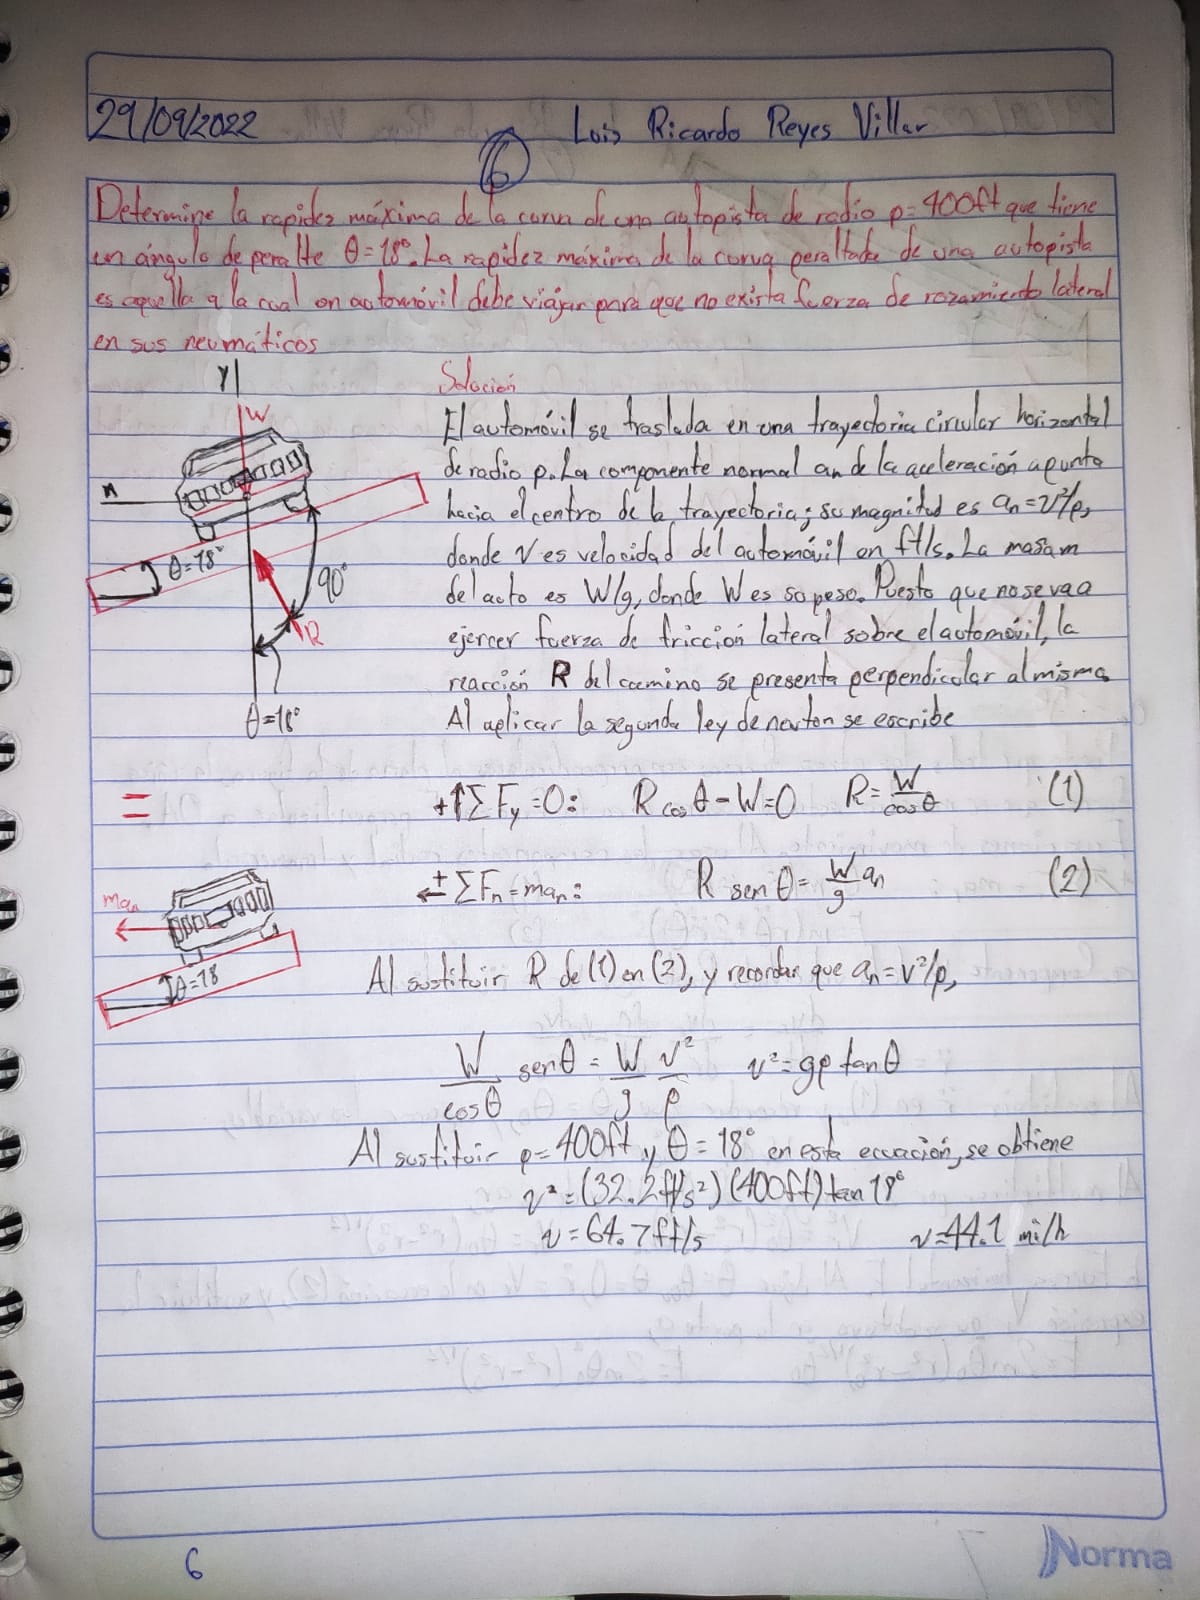 29/09/2022
Luis Ricardo Reyes Villar
6
Determine la rapidez máxima de la curva de una autopista de radio ρ=400ft que tiene
un ángulo de peralte θ=18°. La rapidez máxima de la curva peraltada de una autopista
es aquella a la cual un automóvil debe viajar para que no exista fuerza de rozamiento lateral
en sus neumáticos
Solución
y
W
n
θ=18°
90°
R
θ=18°
El automóvil se traslada en una trayectoria circular horizontal
de radio ρ. La componente normal an de la aceleración apunta
hacia el centro de la trayectoria; su magnitud es an=v²/ρ,
donde v es velocidad del automóvil en ft/s. La masa m
del auto es W/g, donde W es su peso. Puesto que no se va a
ejercer fuerza de fricción lateral sobre el automóvil, la
reacción R del camino se presenta perpendicular al mismo.
Al aplicar la segunda ley de newton se escribe
=
+↑ΣFy=0: R cos θ-W=0 R=W/cosθ (1)
man
θ=18
←+ ΣFn=man: R sen θ= W/g an (2)
Al sustituir R de (1) en (2), y recordar que an=v²/ρ,
W/cosθ senθ = W/g v²/ρ v²=gρ tanθ
Al sustituir ρ=400ft y θ=18° en esta ecuación, se obtiene
v²=(32.2ft/s²)(400ft)tan 18°
v=64.7ft/s v=44.1 mi/h
6
Norma